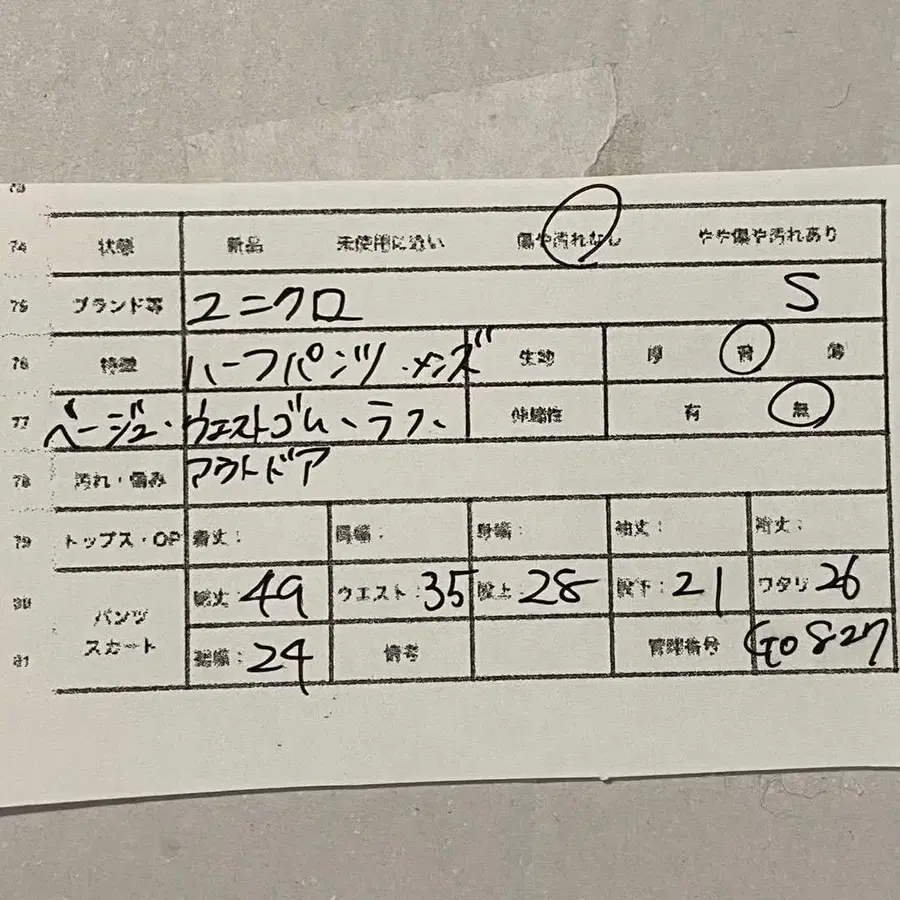 73
74 状態 新品 未使用に近い 傷や汚れなし やや傷や汚れあり
75 ブランド等 ユニクロ S
76 特徴 ハーフパンツ・メンズ 生地 厚 普 薄
77 ベージュ・ウエストゴム、ラフ、 伸縮性 有 無
78 汚れ・傷み アウトドア
79 トップス・OP 着丈: 肩幅: 身幅: 袖丈: 裄丈:
80 パンツ 総丈 49 ウエスト: 35 股上: 28 股下: 21 ワタリ 26
81 スカート 裾幅: 24 備考 管理番号 G0827